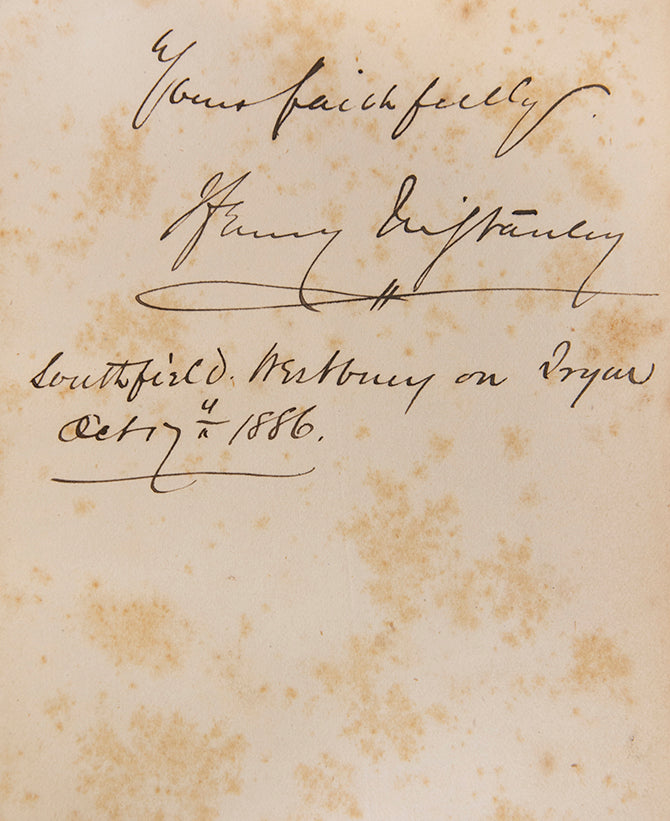 Yours faithfully
Henry M Stanley
Southfield. Westbury on Trym
Oct 17th 1886.